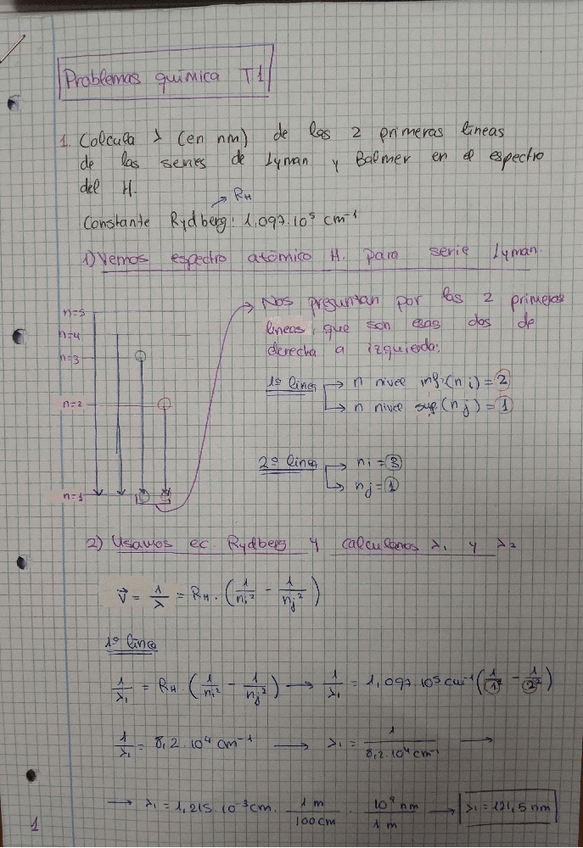 Problemas química T1
1. Calcula λ (en nm) de las 2 primeras líneas
de las series de Lyman y Balmer en el espectro
del H.
→ R_H
Constante Rydberg: 1,097·10⁵ cm⁻¹
1) Vemos espectro atómico H. para serie Lyman.
n=5
n=4
n=3
n=2
n=1
Nos preguntan por las 2 primeras
líneas, que son esas dos de
derecha a izquierda:
1º línea → n nivel inf.(ni) = 2
→ n nivel sup.(nj) = 1
2º línea → ni = 3
→ nj = 1
2) Usamos ec. Rydberg y calculamos λ₁ y λ₂
ṽ = 1/λ = R_H · (1/ni² - 1/nj²)
1º línea
1/λ₁ = R_H · (1/ni² - 1/nj²) → 1/λ₁ = 1,097·10⁵ cm⁻¹ (1/1² - 1/2²)
1/λ₁ = 8,2·10⁴ cm⁻¹ → λ₁ = 1/8,2·10⁴ cm⁻¹ →
→ λ₁ = 1,215·10⁻⁵ cm · 1 m/100 cm · 10⁹ nm/1 m → λ₁ = 121,5 nm
1